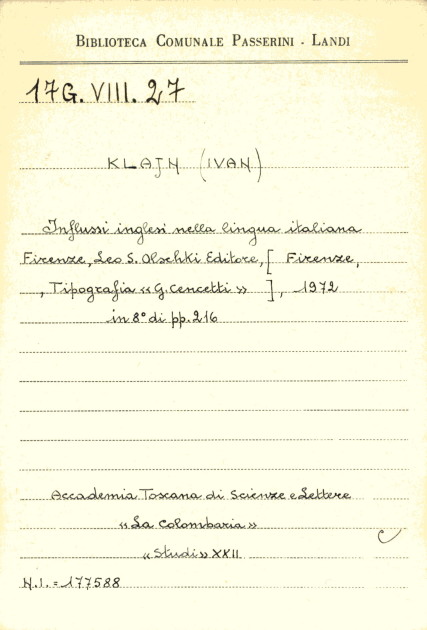 BIBLIOTECA COMUNALE PASSERINI - LANDI
17G. VIII. 27
KLAJN (IVAN)
Influssi inglesi nella lingua italiana
Firenze, Leo S. Olschki Editore, [ Firenze,
, Tipografia «G. Cencetti» ], 1972
in 8° di pp. 216
Accademia Toscana di Scienze e Lettere
«La Colombaria»
«Studi» XXII
N.I. = 177588